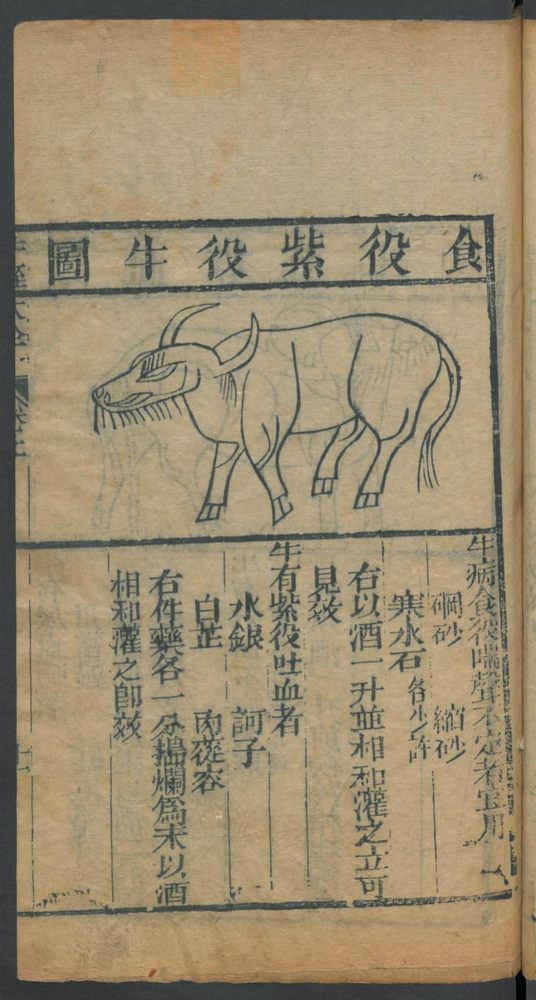 食役紫役牛圖
牛病食役喘聲不定者宜用
硇砂 縮砂
寒水石各少許
右以酒一升並相和灌之立可
見效
牛有紫役吐血者
水銀 訶子
白芷 肉蓯容
右件藥各一分搗爛為末以酒
相和灌之卽效